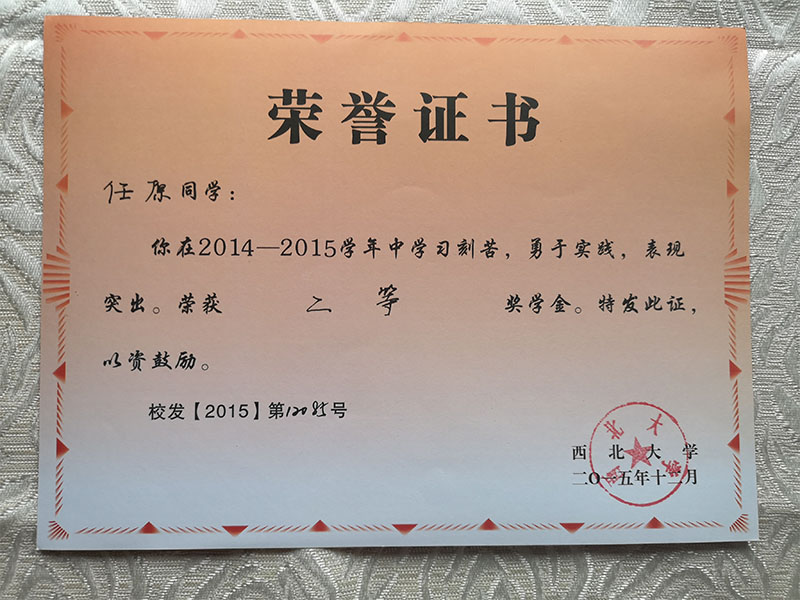 荣誉证书
任原同学：
你在2014—2015学年中学习刻苦，勇于实践，表现
突出。荣获 二等 奖学金。特发此证，
以资鼓励。
校发【2015】第12085号
西北大学
二〇一五年十二月
西北大学